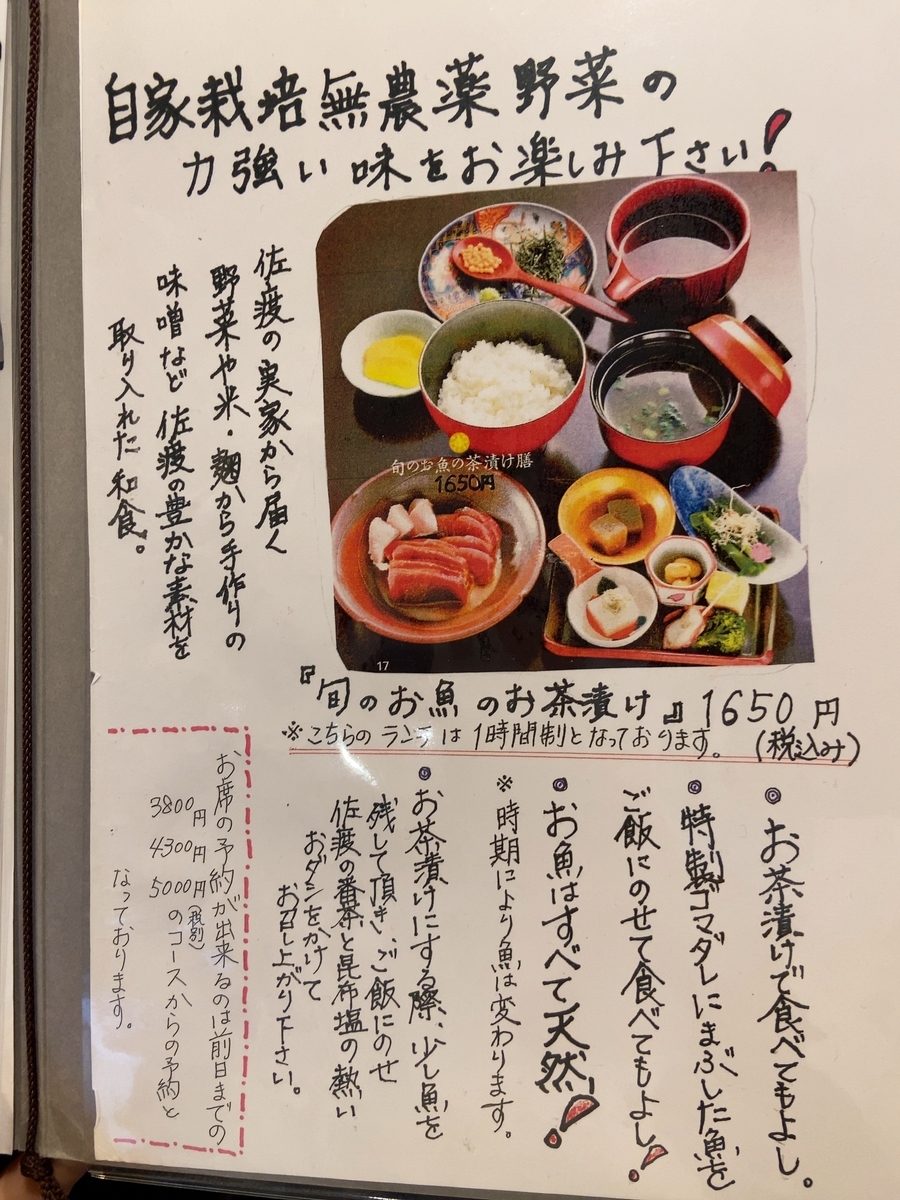 自家栽培無農薬野菜の
力強い味をお楽しみ下さい!
佐渡の実家から届く
野菜や米・麹から手作りの
味噌など佐渡の豊かな素材を
取り入れた和食。
旬のお魚の茶漬け膳
1650円
17
『旬のお魚のお茶漬け』1650円
(税込み)
※こちらのランチは1時間制となっております。
◎お茶漬けで食べてもよし。
◎特製ゴマダレにまぶした魚を
ご飯にのせて食べてもよし!
◎お魚はすべて天然!
※時期により魚は変わります。
◎お茶漬けにする際、少し魚を
残して頂き、ご飯にのせ
佐渡の番茶と昆布塩の熱い
おダシをかけて
お召し上がり下さい。
お席の予約が出来るのは前日までの
3800円
4300円
5000円(税別)のコースからの予約と
なっております。